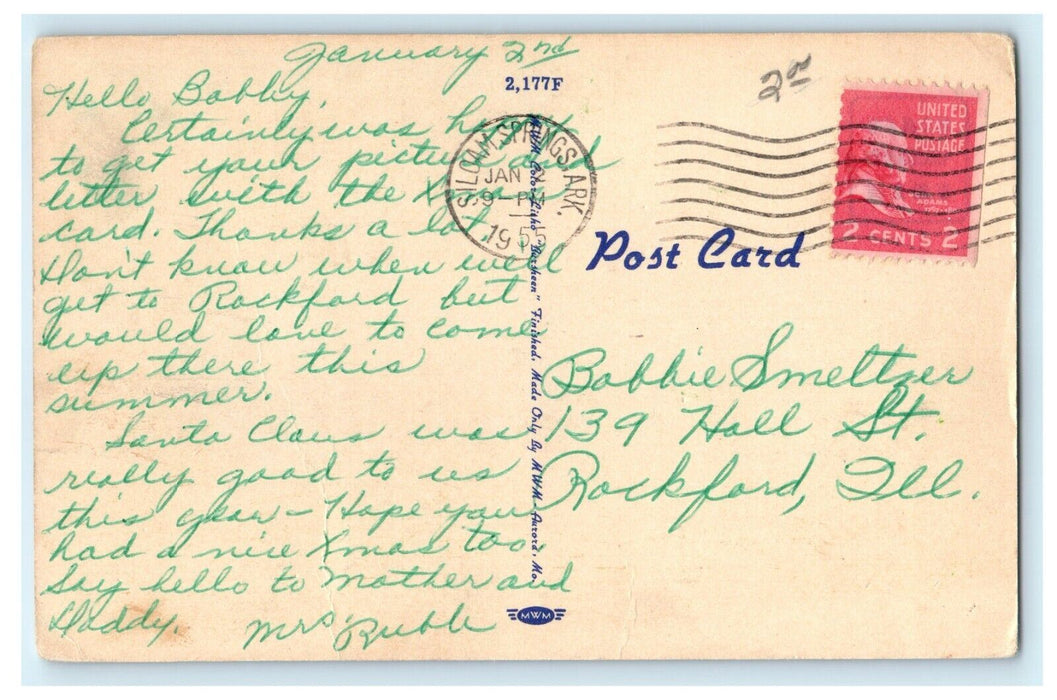 January 2nd
Hello Bobby,
Certainly was
to get your picture and
letter with the Xmas
card. Thanks a lot.
Don't know when we'll
get to Rockford but
would love to come
up there this
summer.
Santa Claus was
really good to us
this year - Hope you
had a nice Xmas too.
Say hello to Mother and
Daddy.
Mrs. Ruble
2,177F
MWM Color-Litho "Garsheen" Finished. Made Only By MWM-Aurora, Mo.
MWM
SILOAM SPRINGS, ARK.
JAN
9-PM
1955
2¢
UNITED
STATES
POSTAGE
ADAMS
2 CENTS 2
Post Card
Bobbie Smeltzer
139 Hall St.
Rockford, Ill.